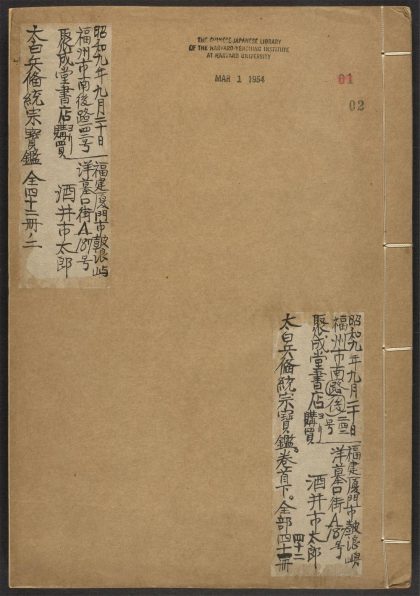 THE CHINESE-JAPANESE LIBRARY
OF THE HARVARD-YENCHING INSTITUTE
AT HARVARD UNIVERSITY
MAR 1 1954
01
02
昭和九年九月二十日
福州市南後路一四三号
聚成堂書店ヨリ購買
福建厦門市鼓浪嶼
洋墓口街A187号
酒井市太郎
太白兵備統宗寶鑑 全四十二冊ノ二
昭和九年九月二十日
福州市南路後一四三号
聚成堂書店ヨリ購買
福建厦門市鼓浪嶼
洋墓口街A187号
酒井市太郎
太白兵備統宗寶鑑。卷首下。全部四十二冊